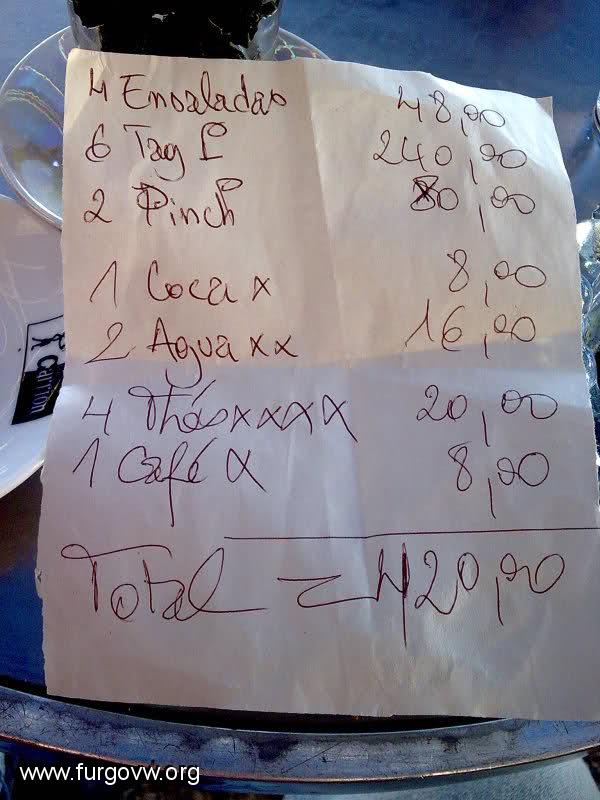 4 Ensaladas 48,00
6 Tag P 240,00
2 Pinch 80,00
1 Coca x 8,00
2 Agua xx 16,00
4 Thés xxxx 20,00
1 Café x 8,00
Total = 420,00
Carrion
www.furgovw.org